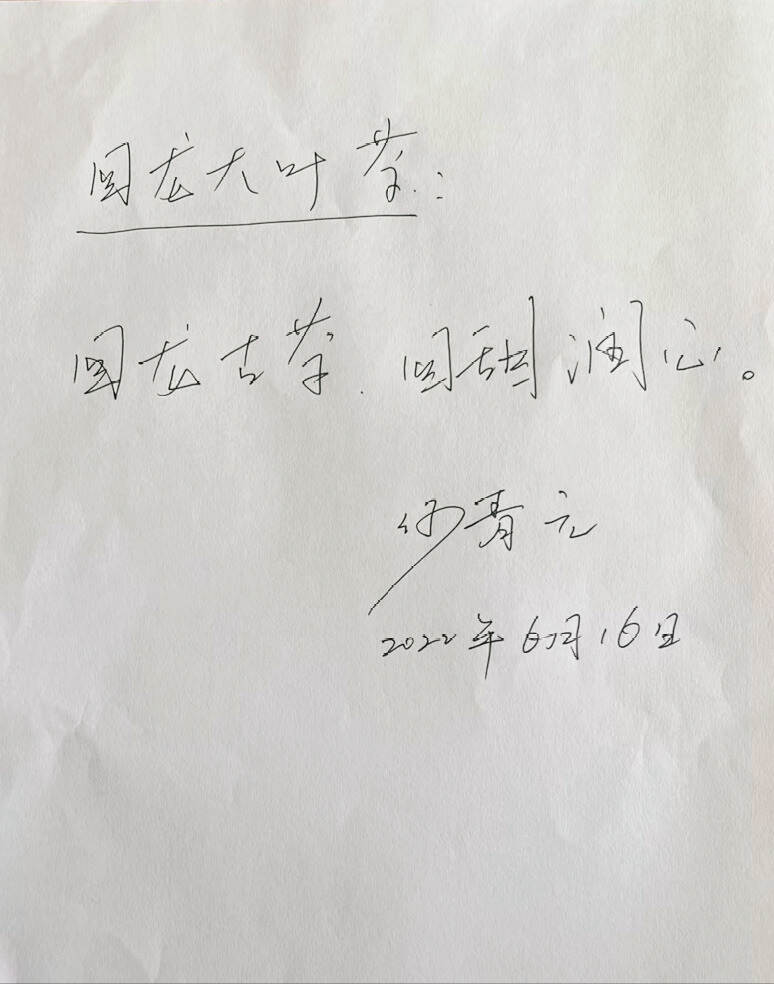 回龙大叶茶:
回龙古茶.回甜润心。
何青元
2022年6月16日